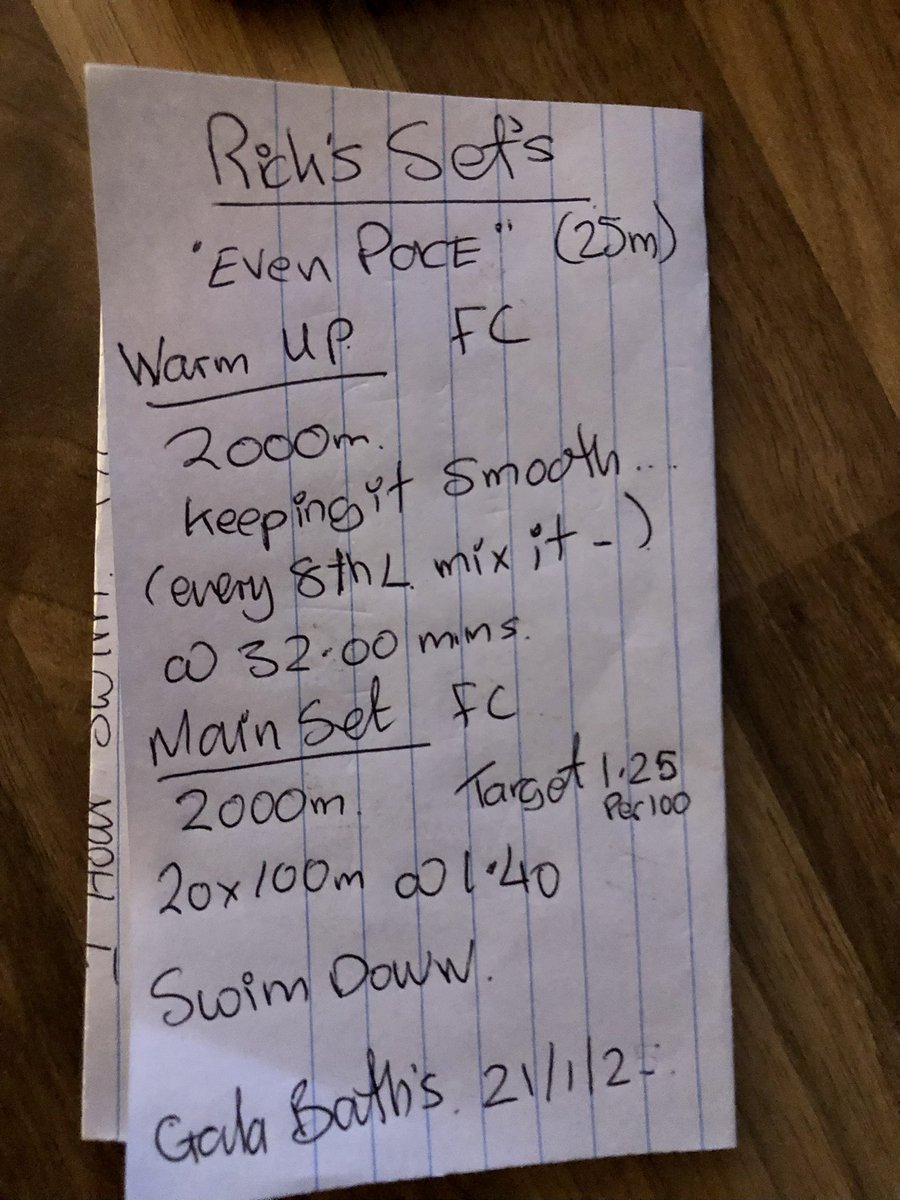 Rich's Set's
"Even Pace" (25m)
Warm Up FC
2000m.
keeping it smooth....
(every 8th L mix it -)
@ 32.00 mins.
Main Set FC
2000m. Target 1.25
Per 100
20x100m @ 1.40
Swim Down.
Gala Bath's. 21/1/2
1 Hour Swim.